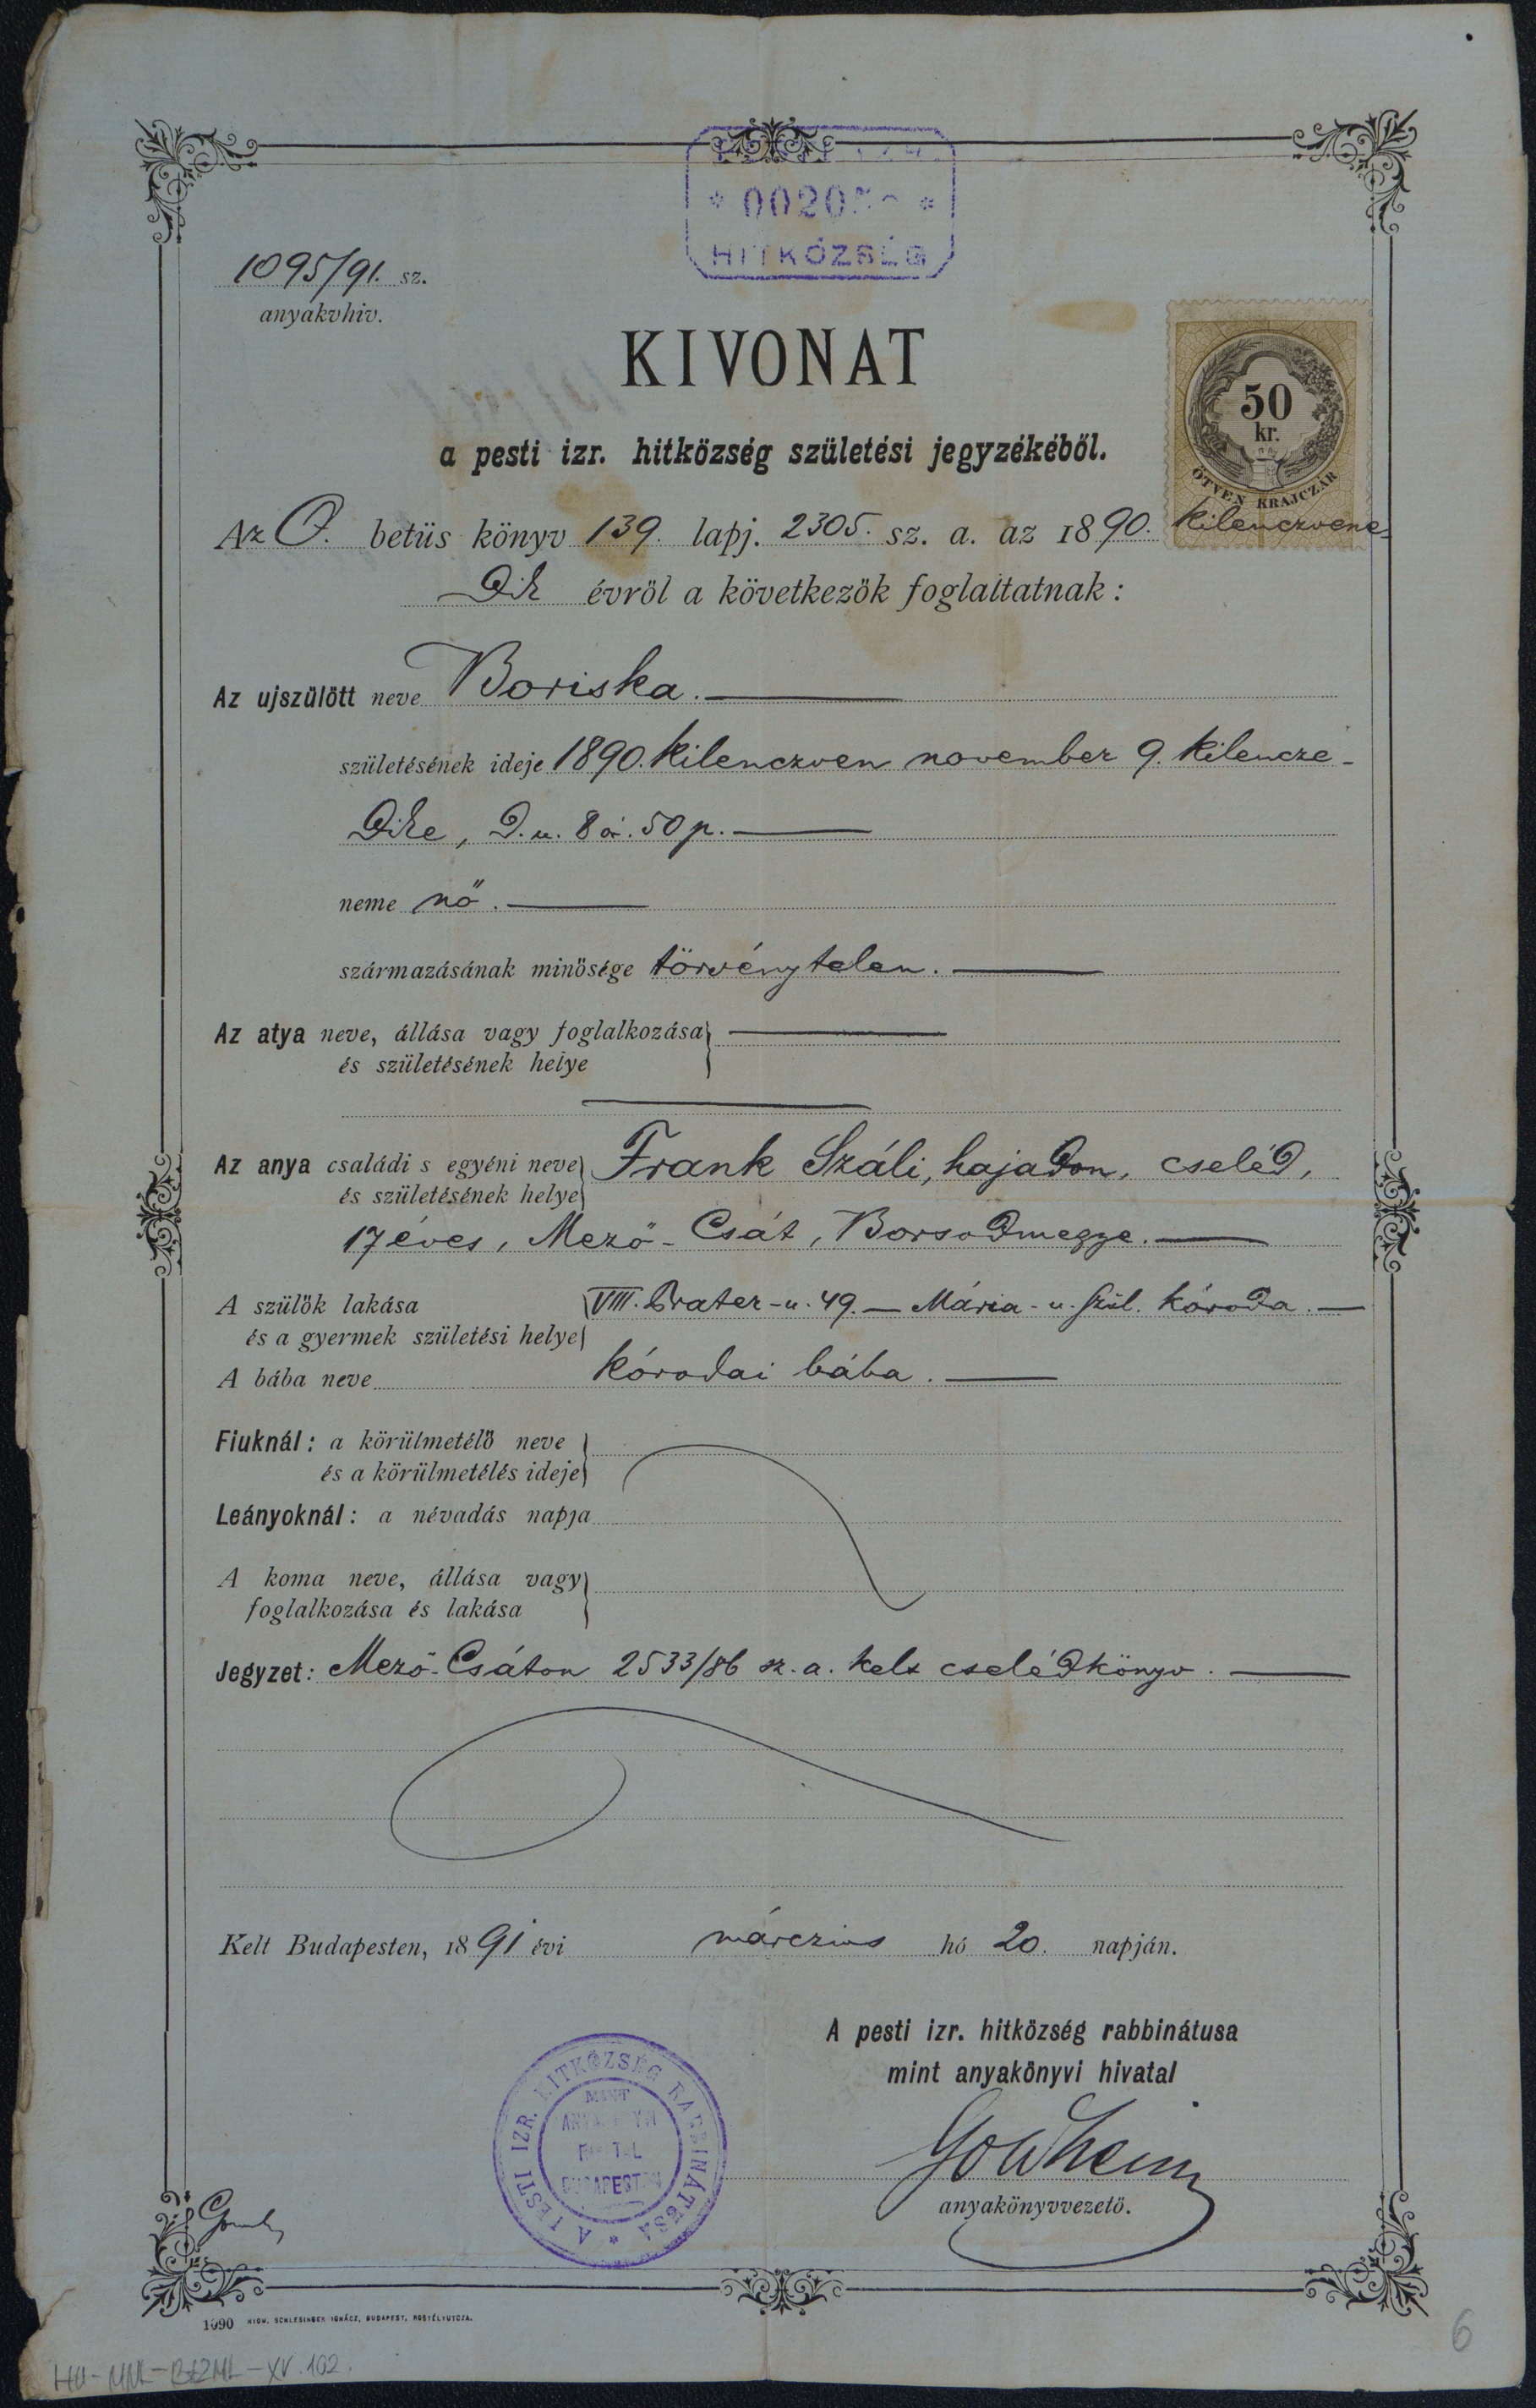 * 0020 *
HITKÖZSÉG
1095/91. sz.
anyakvhiv.
KIVONAT
50
kr.
ÖTVEN KRAJCZÁR
a pesti izr. hitközség születési jegyzékéből.
Az O. betüs könyv 139. lapj. 2305. sz. a. az 1890. kilenczvene-
dik évröl a következök foglaltatnak:
Az ujszülött neve Boriska.
születésének ideje 1890. kilenczven november 9. kilencze-
dike, d. u. 8 ó. 50 p.
neme nő.
származásának minösége törvénytelen.
Az atya neve, állása vagy foglalkozása
és születésének helye
Az anya családi s egyéni neve Frank Száli, hajadon, cseléd,
és születésének helye
17 éves, Mező-Csát, Borsodmegye.
A szülök lakása VIII. Prater-u. 49. — Mária-u. szül. kóroda. —
és a gyermek születési helye
A bába neve kórodai bába.
Fiuknál: a körülmetélö neve
és a körülmetélés ideje
Leányoknál: a névadás napja
A koma neve, állása vagy
foglalkozása és lakása
Jegyzet: Mező-Csáton 2533/86 sz. a. kelt cselédkönyv.
Kelt Budapesten, 1891 évi márczius hó 20. napján.
A pesti izr. hitközség rabbinátusa
mint anyakönyvi hivatal
A PESTI IZR. HITKÖZSÉG RABBINÁTUSA *
MINT
BUDAPESTEN
Goldheim
anyakönyvvezetö.
1090 NYOM. SCHLESINGER IGNÁCZ, BUDAPEST, ROSTÉLYUTCZA.
HU-MNL-BAZML-XV.102.
6